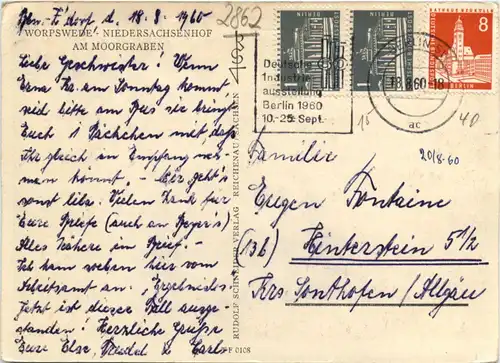 Bln.-Z'dorf d. 18.8.1960
WORPSWEDE - NIEDERSACHSENHOF
AM MOORGRABEN
Liebe Geschwister! Wenn
Erna Ka. am Sonntag kommt
seid bitte am Bus sie bringt
Euch 1 Päckchen mit, daß
Ihr gleich in Empfang neh-
men könnt. - Mir geht's
sonst lila. Vielen Dank für
Eure Briefe (auch an Beyer's)
Alles Nähere im Brief! -
Ich kam soeben hier vom
Arbeitsamt an. Ergebnislos.
Jetzt ist dieser Fall ausge-
standen! Herzliche Grüße
Eure Else, &
RUDOLF SCHNEIDER VERLAG REICHENAU SACHSEN
FF 0108
2862
Deutsche
Industrie
ausstellung
Berlin 1960
10.-25. Sept.
BERLIN
BERLIN
1
8
BERLIN
18.8.60-18
ac
15
40
20/8.60
Familie
Eugen Fontaine
(13b) Hinterstein 5 1/2
Krs Sonthofen/Allgäu